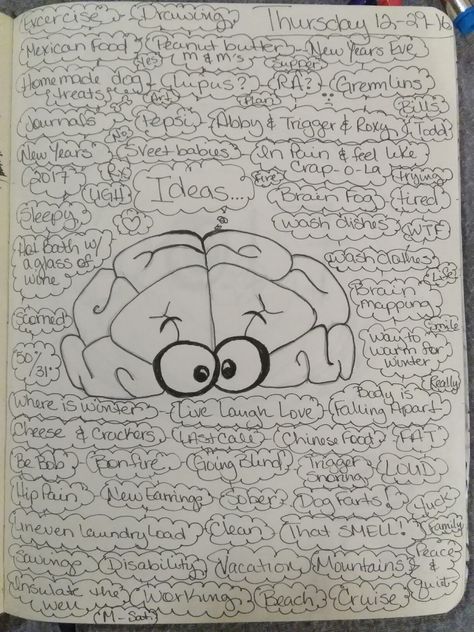 Excercise Drawing Thursday 12-29-16
Mexican Food Peanut butter M & M's New Years Eve
Yes Supper
Homemade dog treats Lupus? RA? Gremlins
Art Plan Bills
Journals Pepsi Abby & Trigger & Roxy Todd
No
New Years 2017 Sweet babies In Pain & feel like Crap-o-la trying
Rx Fire
UGH Ideas... Brain Fog tired
Sleepy wash dishes WTF
Hot Bath w/ a glass of wine wash clothes
Life
Brain mapping
Scarred Smile
50°/31° way to warm for winter
Really
Where is winter Live Laugh Love Body is Falling Apart
Cheese & Crackers Last Call Chinese Food FAT
Be Bob Bonfire Going Blind Trigger Snoring LOUD
Hip Pain New Earrings Sober Dog Farts! Yuck
Uneven laundry load Clean That SMELL! Family
Savings Disability Vacation Mountains Peace & quiet
Insulate the well Working Beach Cruise
M-Sat.